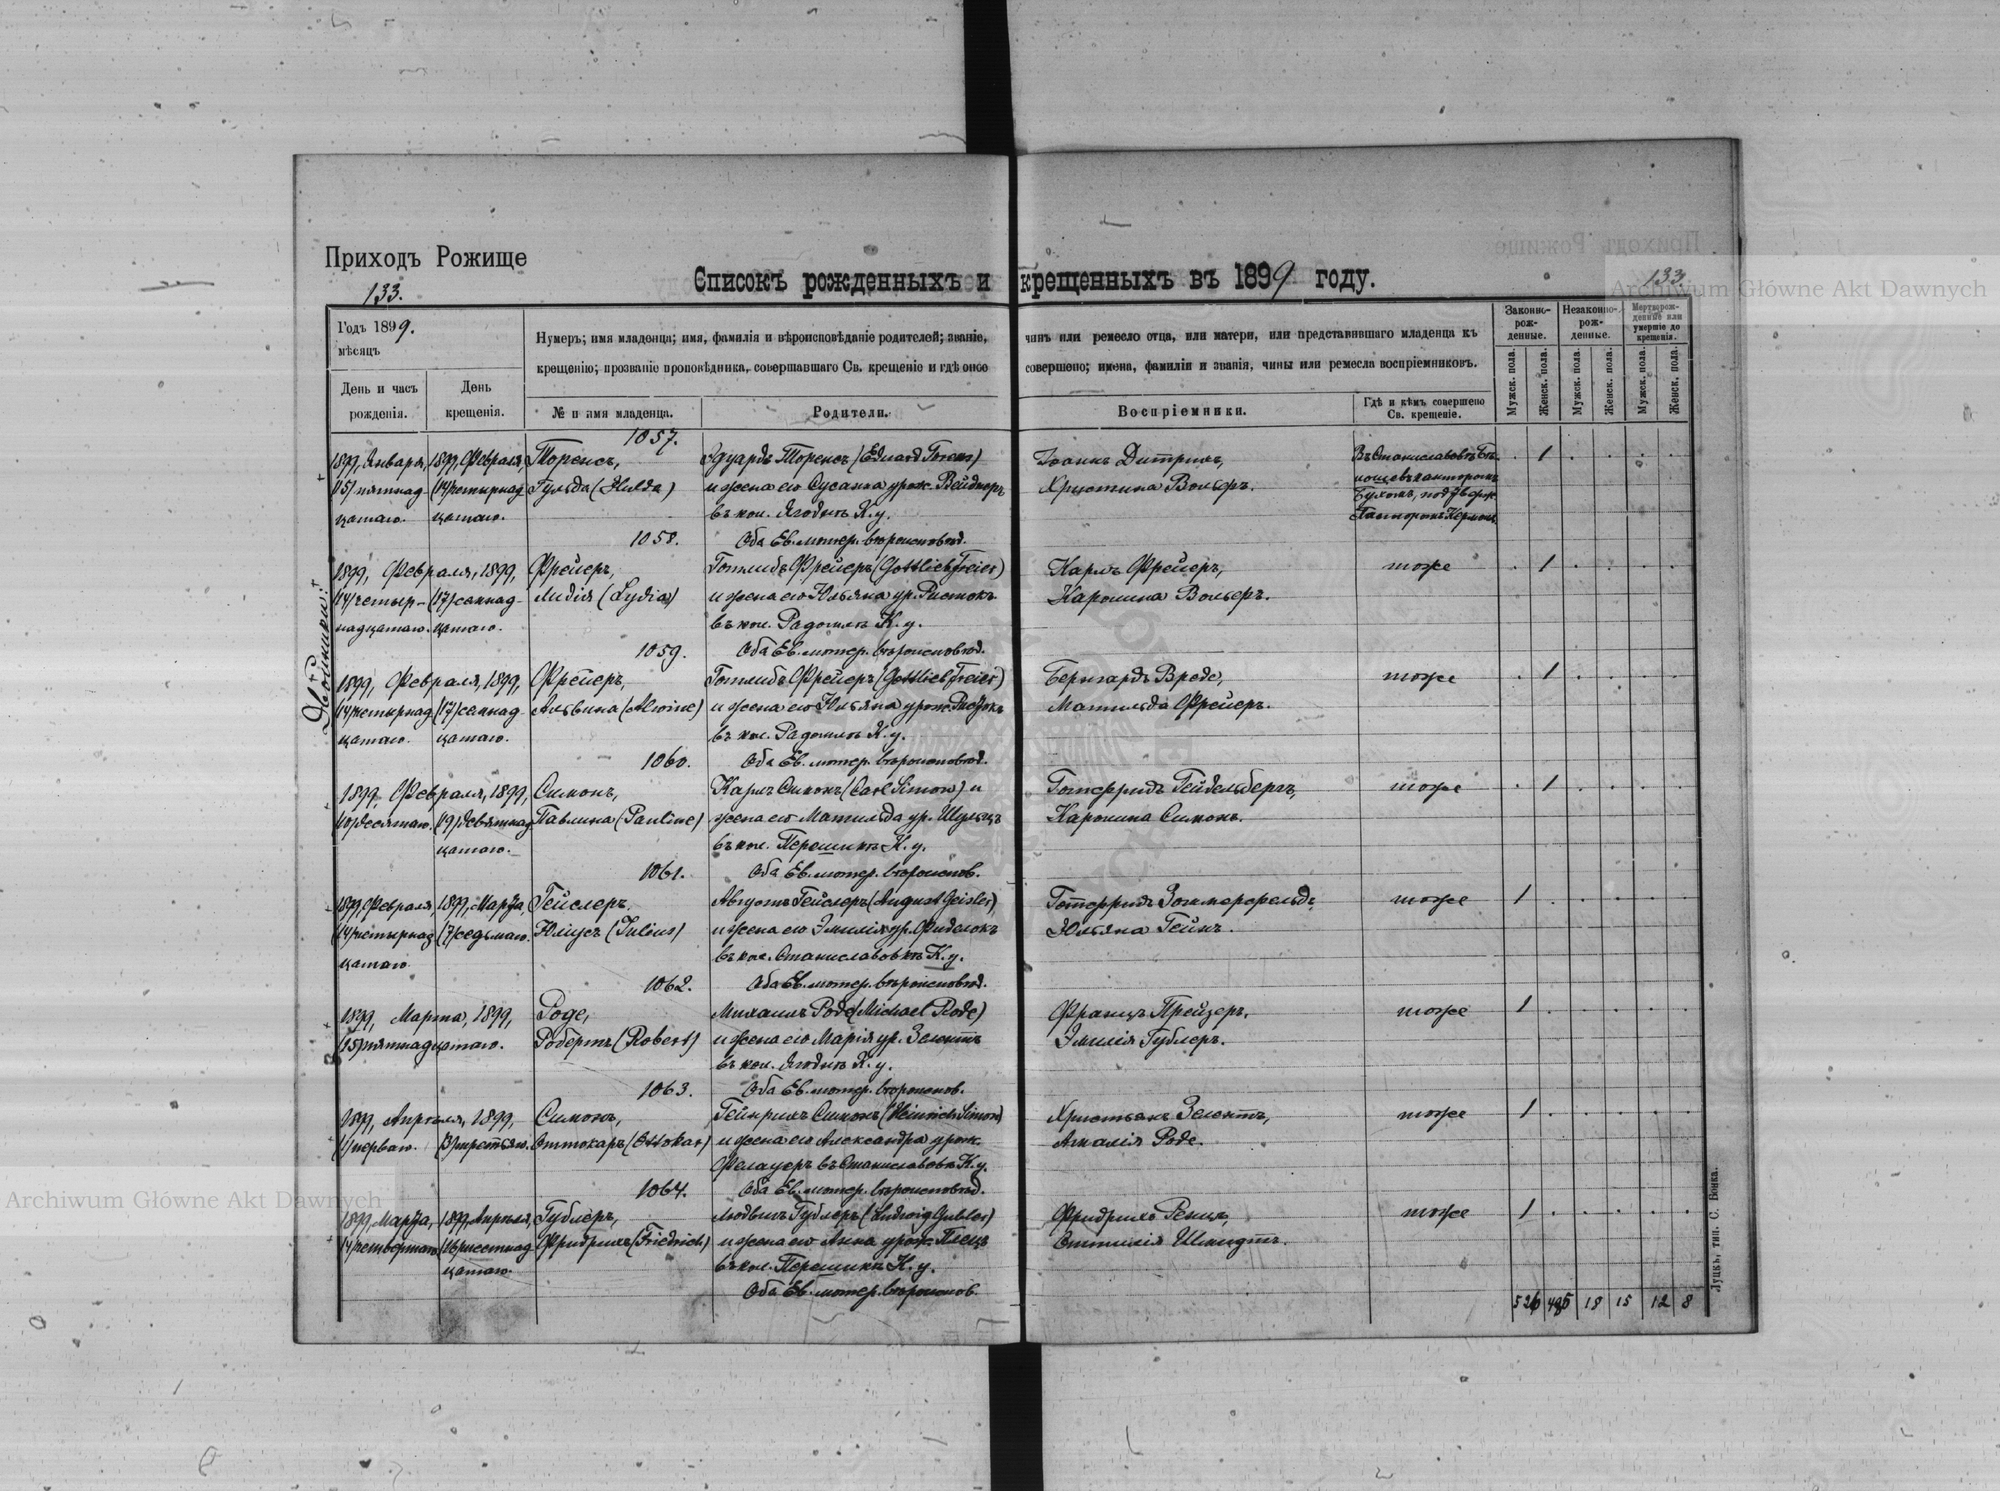 Приходъ Рожище
133.
Списокъ рожденныхъ и крещенныхъ въ 1899 году.
133.
Archiwum Główne Akt Dawnych
Годъ 1899.
мѣсяцъ
День и часъ рожденія.
День крещенія.
Нумеръ; имя младенца; имя, фамилія и вѣроисповѣданіе родителей; званіе, чинъ или ремесло отца, или матери, или представившаго младенца къ
крещенію; прозваніе проповѣдника, совершавшаго Св. крещеніе и гдѣ оное совершено; имена, фамиліи и званія, чины или ремесла воспріемниковъ.
№ и имя младенца.
Родители.
Воспріемники.
Гдѣ и кѣмъ совершено Св. крещеніе.
Законно-рож-денные.
Незаконно-рож-денные.
Мертворож-денные или умершіе до крещенія.
Мужск. пола.
Женск. пола.
Мужск. пола.
Женск. пола.
Мужск. пола.
Женск. пола.
1057.
1899, Января, 1899, Февраля Торенсъ, Эдуардъ Торенсъ (Eduard Torens) Іоаннъ Дитрихъ, 1
(15) пятнад- (14) четырнад- Гульда (Hulda) и жена его Сусанна урож. Вейднеръ Христина Вольеръ.
цатаго. цатаго. въ кол. Ягодинъ К. у.
1058. Оба Ев. лютер. вѣроисповѣд.
1899, Февраля, 1899, Фрейеръ, Готлибъ Фрейеръ (Gottlieb Freier) Карлъ Фрейеръ, тоже 1
(14) четыр- (17) семнад- Лидія (Lydia) и жена его Юльяна ур. Ристокъ Каролина Вольеръ.
надцатаго. цатаго. въ кол. Радомлѣ К. у.
1059. Оба Ев. лютер. вѣроисповѣд.
Двойники:
1899, Февраля, 1899, Фрейеръ, Готлибъ Фрейеръ (Gottlieb Freier) Бернгардъ Вреде, тоже 1
(14) четырнад- (17) семнад- Альвина (Alwine) и жена его Юльяна урож. Ристокъ Матильда Фрейеръ.
цатаго. цатаго. въ кол. Радомлѣ К. у.
1060. Оба Ев. лютер. вѣроисповѣд.
1899, Февраля, 1899, Симонъ, Карлъ Симонъ (Carl Simon) и Готфридъ Гейдельбергъ, тоже 1
(10) десятаго. (19) девятнад- Павлина (Pauline) жена его Матильда ур. Шульцъ Каролина Симонъ.
цатаго. въ кол. Перемилѣ К. у.
1061. Оба Ев. лютер. вѣроиспов.
1899, Февраля, 1899, Марта, Гейслеръ, Августъ Гейслеръ (August Geisler) тоже 1
(14) четырнад- (7) седьмаго. Юліусъ (Julius) и жена его Эмилія ур. Юльяна Гейнъ.
цатаго въ кол. Станиславовкѣ К. у.
1062. Оба Ев. лютер. вѣроисповѣд.
1899, Марта, 1899, Роде, Михаилъ Роде (Michael Rode) Францъ Прейцеръ, тоже 1
(15) пятнадцатаго. Робертъ (Robert) и жена его Марія ур. Зелентъ Эмилія Гублеръ.
въ кол. Ягодинъ К. у.
1063. Оба Ев. лютер. вѣроиспов.
1899, Апрѣля, 1899, Симонъ, Гейнрихъ Симонъ (Heinrich Simon) Христьянъ Зелентъ, тоже 1
(1) перваго. (3) третьяго. Оттокаръ (Ottokar) и жена его Александра урож. Амалія Роде.
въ Станиславовкѣ К. у.
1064. Оба Ев. лютер. вѣроисповѣд.
1899, Марта, 1899, Апрѣля, Гублеръ, Людвигъ Гублеръ (Ludwig Gubler) Фридрихъ тоже 1
(4) четвертаго (16) шестнад- Фридрихъ (Friedrich) и жена его Анна урож. Оттилія Шмидтъ.
цатаго. въ кол. Перемилкѣ К. у.
Оба Ев. лютер. вѣроиспов.
18 15 12 8
Луцкъ, тип. С. Бонка.
Archiwum Główne Akt Dawnych